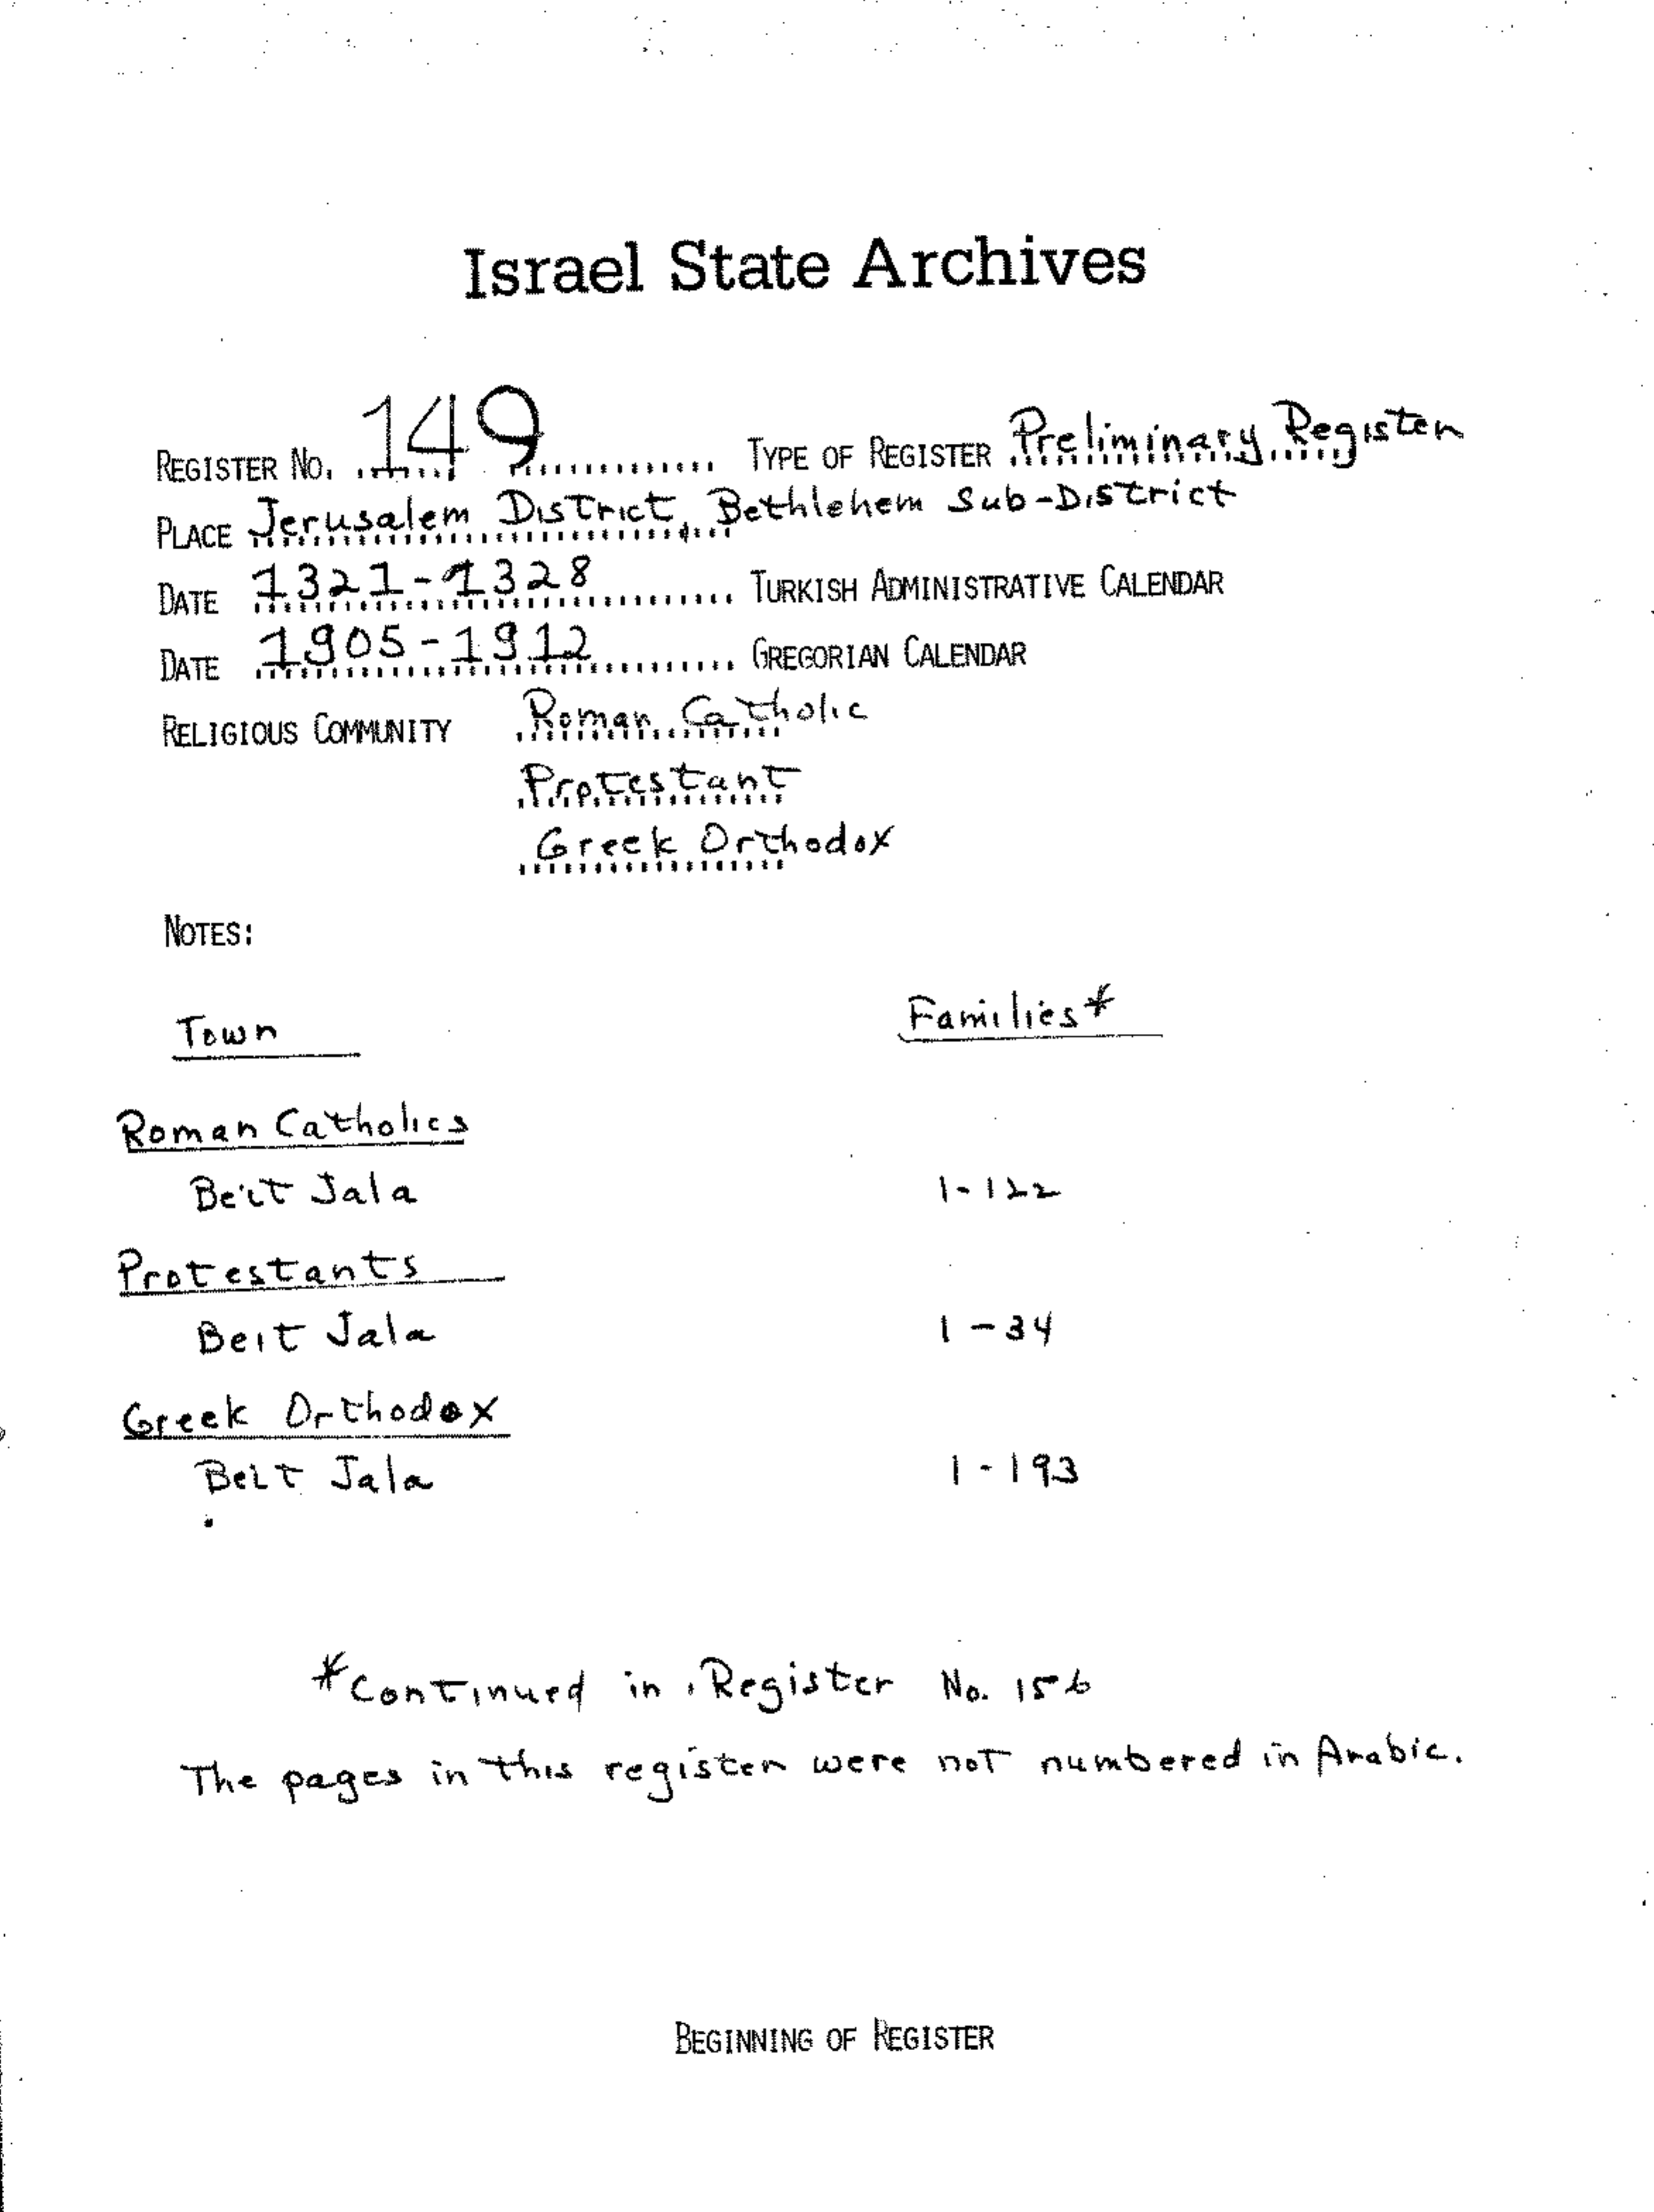 Israel State Archives
REGISTER NO. 149 TYPE OF REGISTER Preliminary Register
PLACE Jerusalem District, Bethlehem Sub-District
DATE 1321-1328 TURKISH ADMINISTRATIVE CALENDAR
DATE 1905-1912 GREGORIAN CALENDAR
RELIGIOUS COMMUNITY Roman Catholic
Protestant
Greek Orthodox
NOTES:
Town Families*
Roman Catholics
Beit Jala 1-122
Protestants
Beit Jala 1-34
Greek Orthodox
Beit Jala 1-193
*Continued in Register No. 156
The pages in this register were not numbered in Arabic.
BEGINNING OF REGISTER